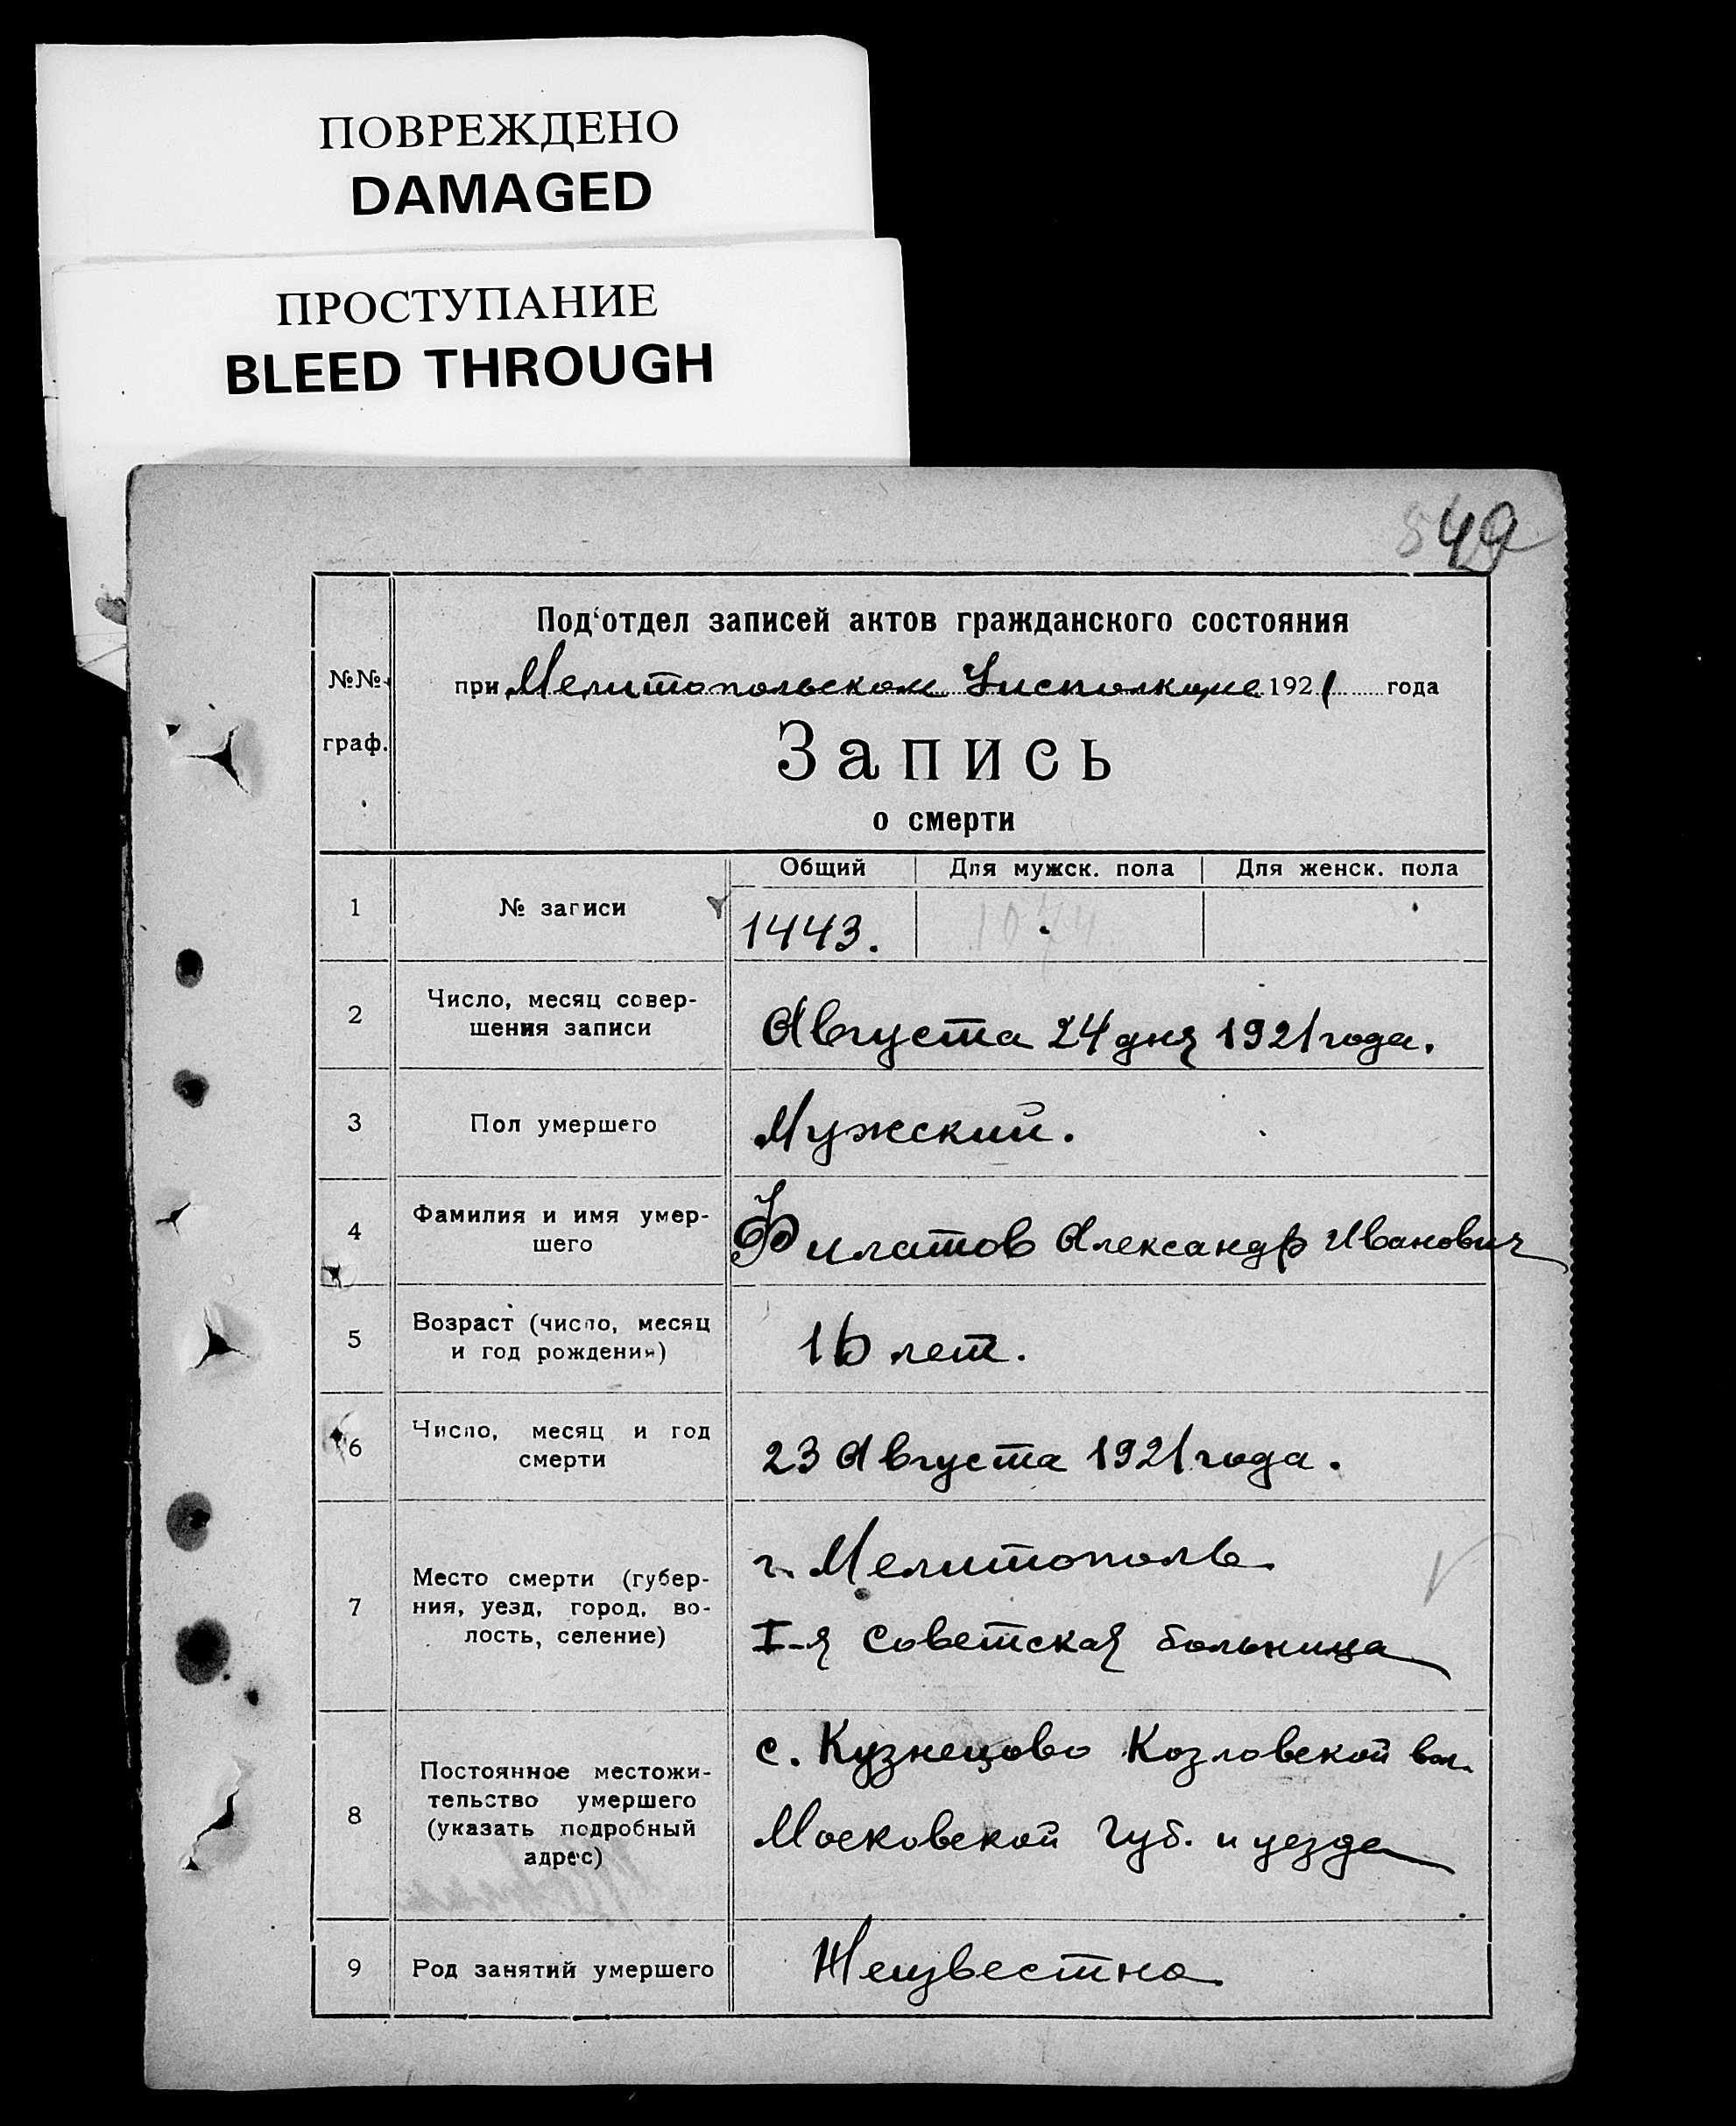 ПОВРЕЖДЕНО
DAMAGED
ПРОСТУПАНИЕ
BLEED THROUGH
Под‘отдел записей актов гражданского состояния
№№ при Мелитопольском Уисполкоме 1921 года
граф. Запись
о смерти
Общий Для мужск. пола Для женск. пола
1 № записи 1443. 1074
2 Число, месяц совер-
шения записи Августа 24 дня 1921 года.
3 Пол умершего Мужский.
4 Фамилия и имя умер-
шего Филатов Александр Иванович
5 Возраст (число, месяц
и год рождения) 16 лет.
6 Число, месяц и год
смерти 23 Августа 1921 года.
г. Мелитополь
7 Место смерти (губер-
ния, уезд, город, во-
лость, селение) I-я Советская больница
с. Кузнецово Козловской вол.
8 Постоянное местожи-
тельство умершего
(указать подробный
адрес) Московской Губ. и уезда
9 Род занятий умершего Неизвестно